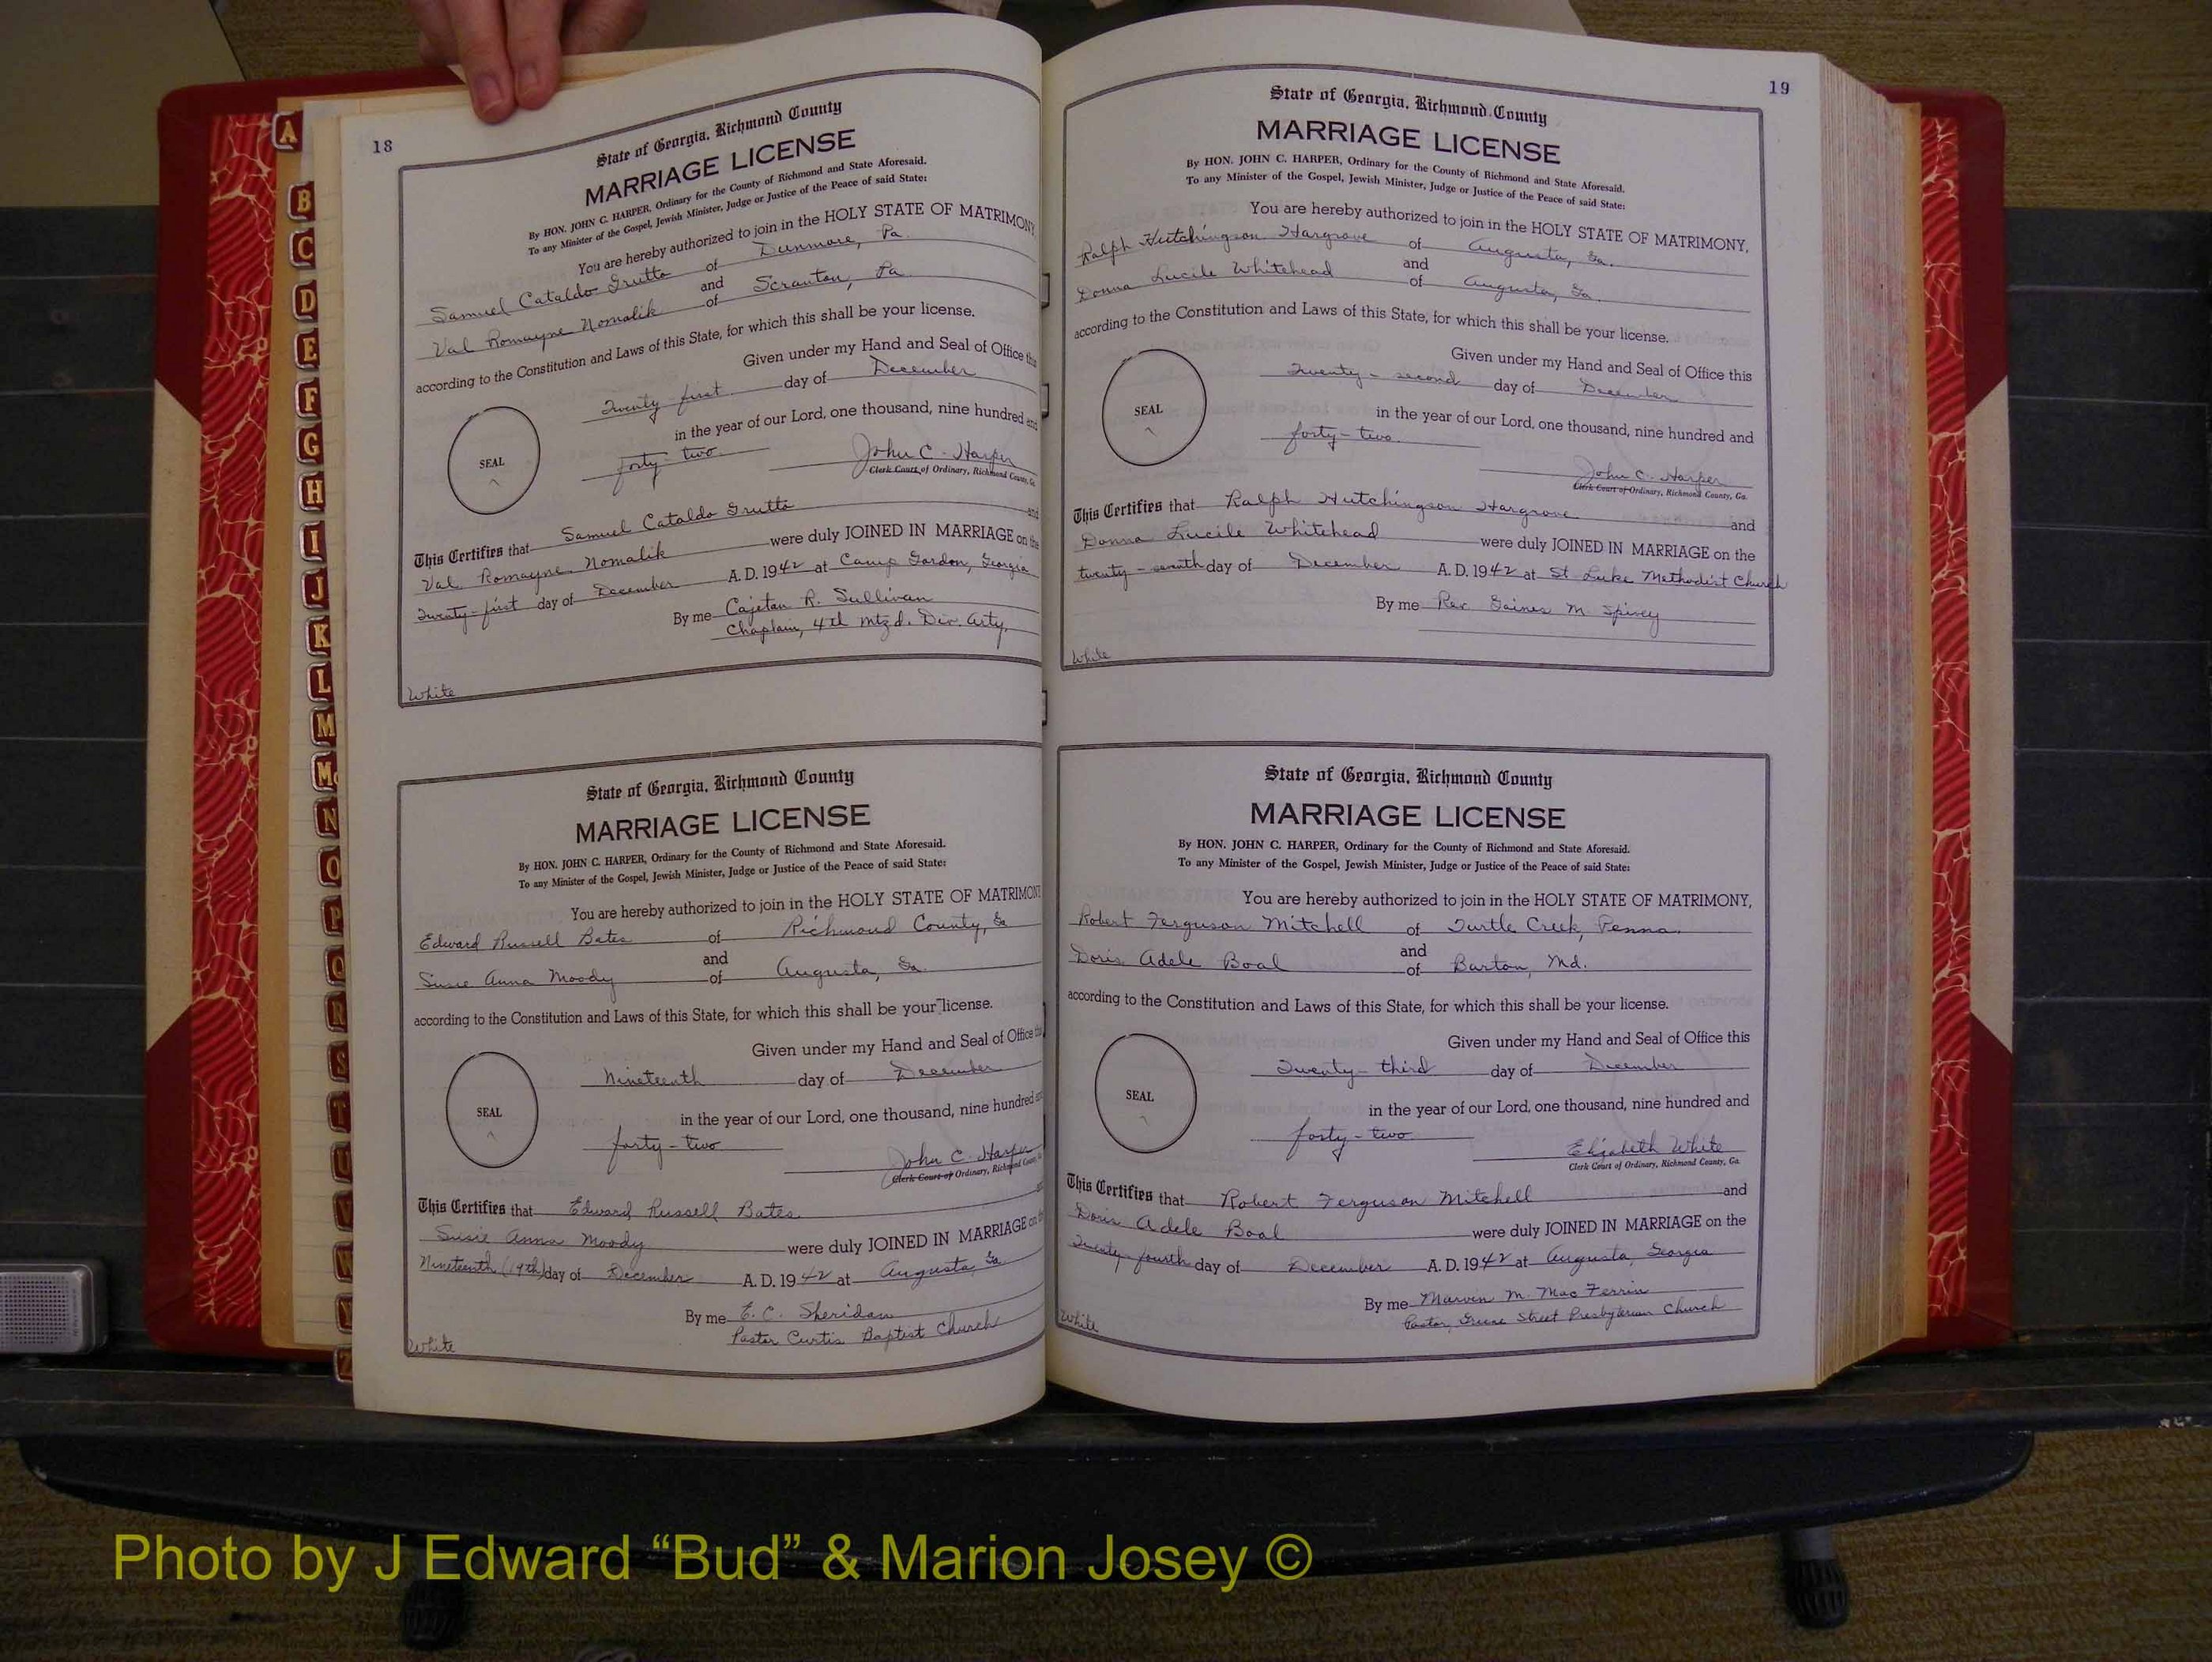 18
State of Georgia, Richmond County
MARRIAGE LICENSE
By HON. JOHN C. HARPER, Ordinary for the County of Richmond and State Aforesaid.
To any Minister of the Gospel, Jewish Minister, Judge or Justice of the Peace of said State:
You are hereby authorized to join in the HOLY STATE OF MATRIMONY
Samuel Cataldo Grutto of Dunmore, Pa.
and
Val Romayne Nomalik of Scranton, Pa.
according to the Constitution and Laws of this State, for which this shall be your license.
Given under my Hand and Seal of Office this
Twenty-first day of December
in the year of our Lord, one thousand, nine hundred and
SEAL
forty-two
John C. Harper
Clerk Court of Ordinary, Richmond County, Ga.
This Certifies that Samuel Cataldo Grutto and
Val Romayne Nomalik were duly JOINED IN MARRIAGE on the
Twenty-first day of December A. D. 1942 at Camp Gordon, Georgia
By me Cajetan R. Sullivan
Chaplain, 4th Mtzd. Div. Arty.
White
State of Georgia, Richmond County
MARRIAGE LICENSE
By HON. JOHN C. HARPER, Ordinary for the County of Richmond and State Aforesaid.
To any Minister of the Gospel, Jewish Minister, Judge or Justice of the Peace of said State:
You are hereby authorized to join in the HOLY STATE OF MATRIMONY
Edward Russell Bates of Richmond County, Ga
and
Susie Anna Moody of Augusta, Ga.
according to the Constitution and Laws of this State, for which this shall be your license.
Given under my Hand and Seal of Office this
Nineteenth day of December
in the year of our Lord, one thousand, nine hundred and
SEAL
forty-two
John C. Harper
Clerk Court of Ordinary, Richmond County, Ga.
This Certifies that Edward Russell Bates
Susie Anna Moody were duly JOINED IN MARRIAGE on the
Nineteenth (19th) day of December A. D. 1942 at Augusta, Ga
By me E. C. Sheridan
Pastor Curtis Baptist Church
White
19
State of Georgia, Richmond County
MARRIAGE LICENSE
By HON. JOHN C. HARPER, Ordinary for the County of Richmond and State Aforesaid.
To any Minister of the Gospel, Jewish Minister, Judge or Justice of the Peace of said State:
You are hereby authorized to join in the HOLY STATE OF MATRIMONY,
Ralph Hutchingson Hargrove of Augusta, Ga.
and
Donna Lucile Whitehead of Augusta, Ga.
according to the Constitution and Laws of this State, for which this shall be your license.
Given under my Hand and Seal of Office this
Twenty-second day of December
in the year of our Lord, one thousand, nine hundred and
SEAL
forty-two.
John C. Harper
Clerk Court of Ordinary, Richmond County, Ga.
This Certifies that Ralph Hutchingson Hargrove and
Donna Lucile Whitehead were duly JOINED IN MARRIAGE on the
twenty-seventh day of December A. D. 1942 at St Luke Methodist Church
By me Rev. Gaines M. Spivey
White
State of Georgia, Richmond County
MARRIAGE LICENSE
By HON. JOHN C. HARPER, Ordinary for the County of Richmond and State Aforesaid.
To any Minister of the Gospel, Jewish Minister, Judge or Justice of the Peace of said State:
You are hereby authorized to join in the HOLY STATE OF MATRIMONY,
Robert Ferguson Mitchell of Turtle Creek, Penna.
and
Doris Adele Boal of Barton, Md.
according to the Constitution and Laws of this State, for which this shall be your license.
Given under my Hand and Seal of Office this
Twenty-third day of December
in the year of our Lord, one thousand, nine hundred and
SEAL
forty-two
Elizabeth White
Clerk Court of Ordinary, Richmond County, Ga.
This Certifies that Robert Ferguson Mitchell and
Doris Adele Boal were duly JOINED IN MARRIAGE on the
Twenty-fourth day of December A. D. 1942 at Augusta, Georgia
By me Marvin M. MacFerrin
Pastor, Greene Street Presbyterian Church
White
A
B
C
D
E
F
G
H
I
J
K
L
M
Mc
N
O
P
Q
R
S
T
U
V
W
Y
Z
Photo by J Edward “Bud” & Marion Josey ©